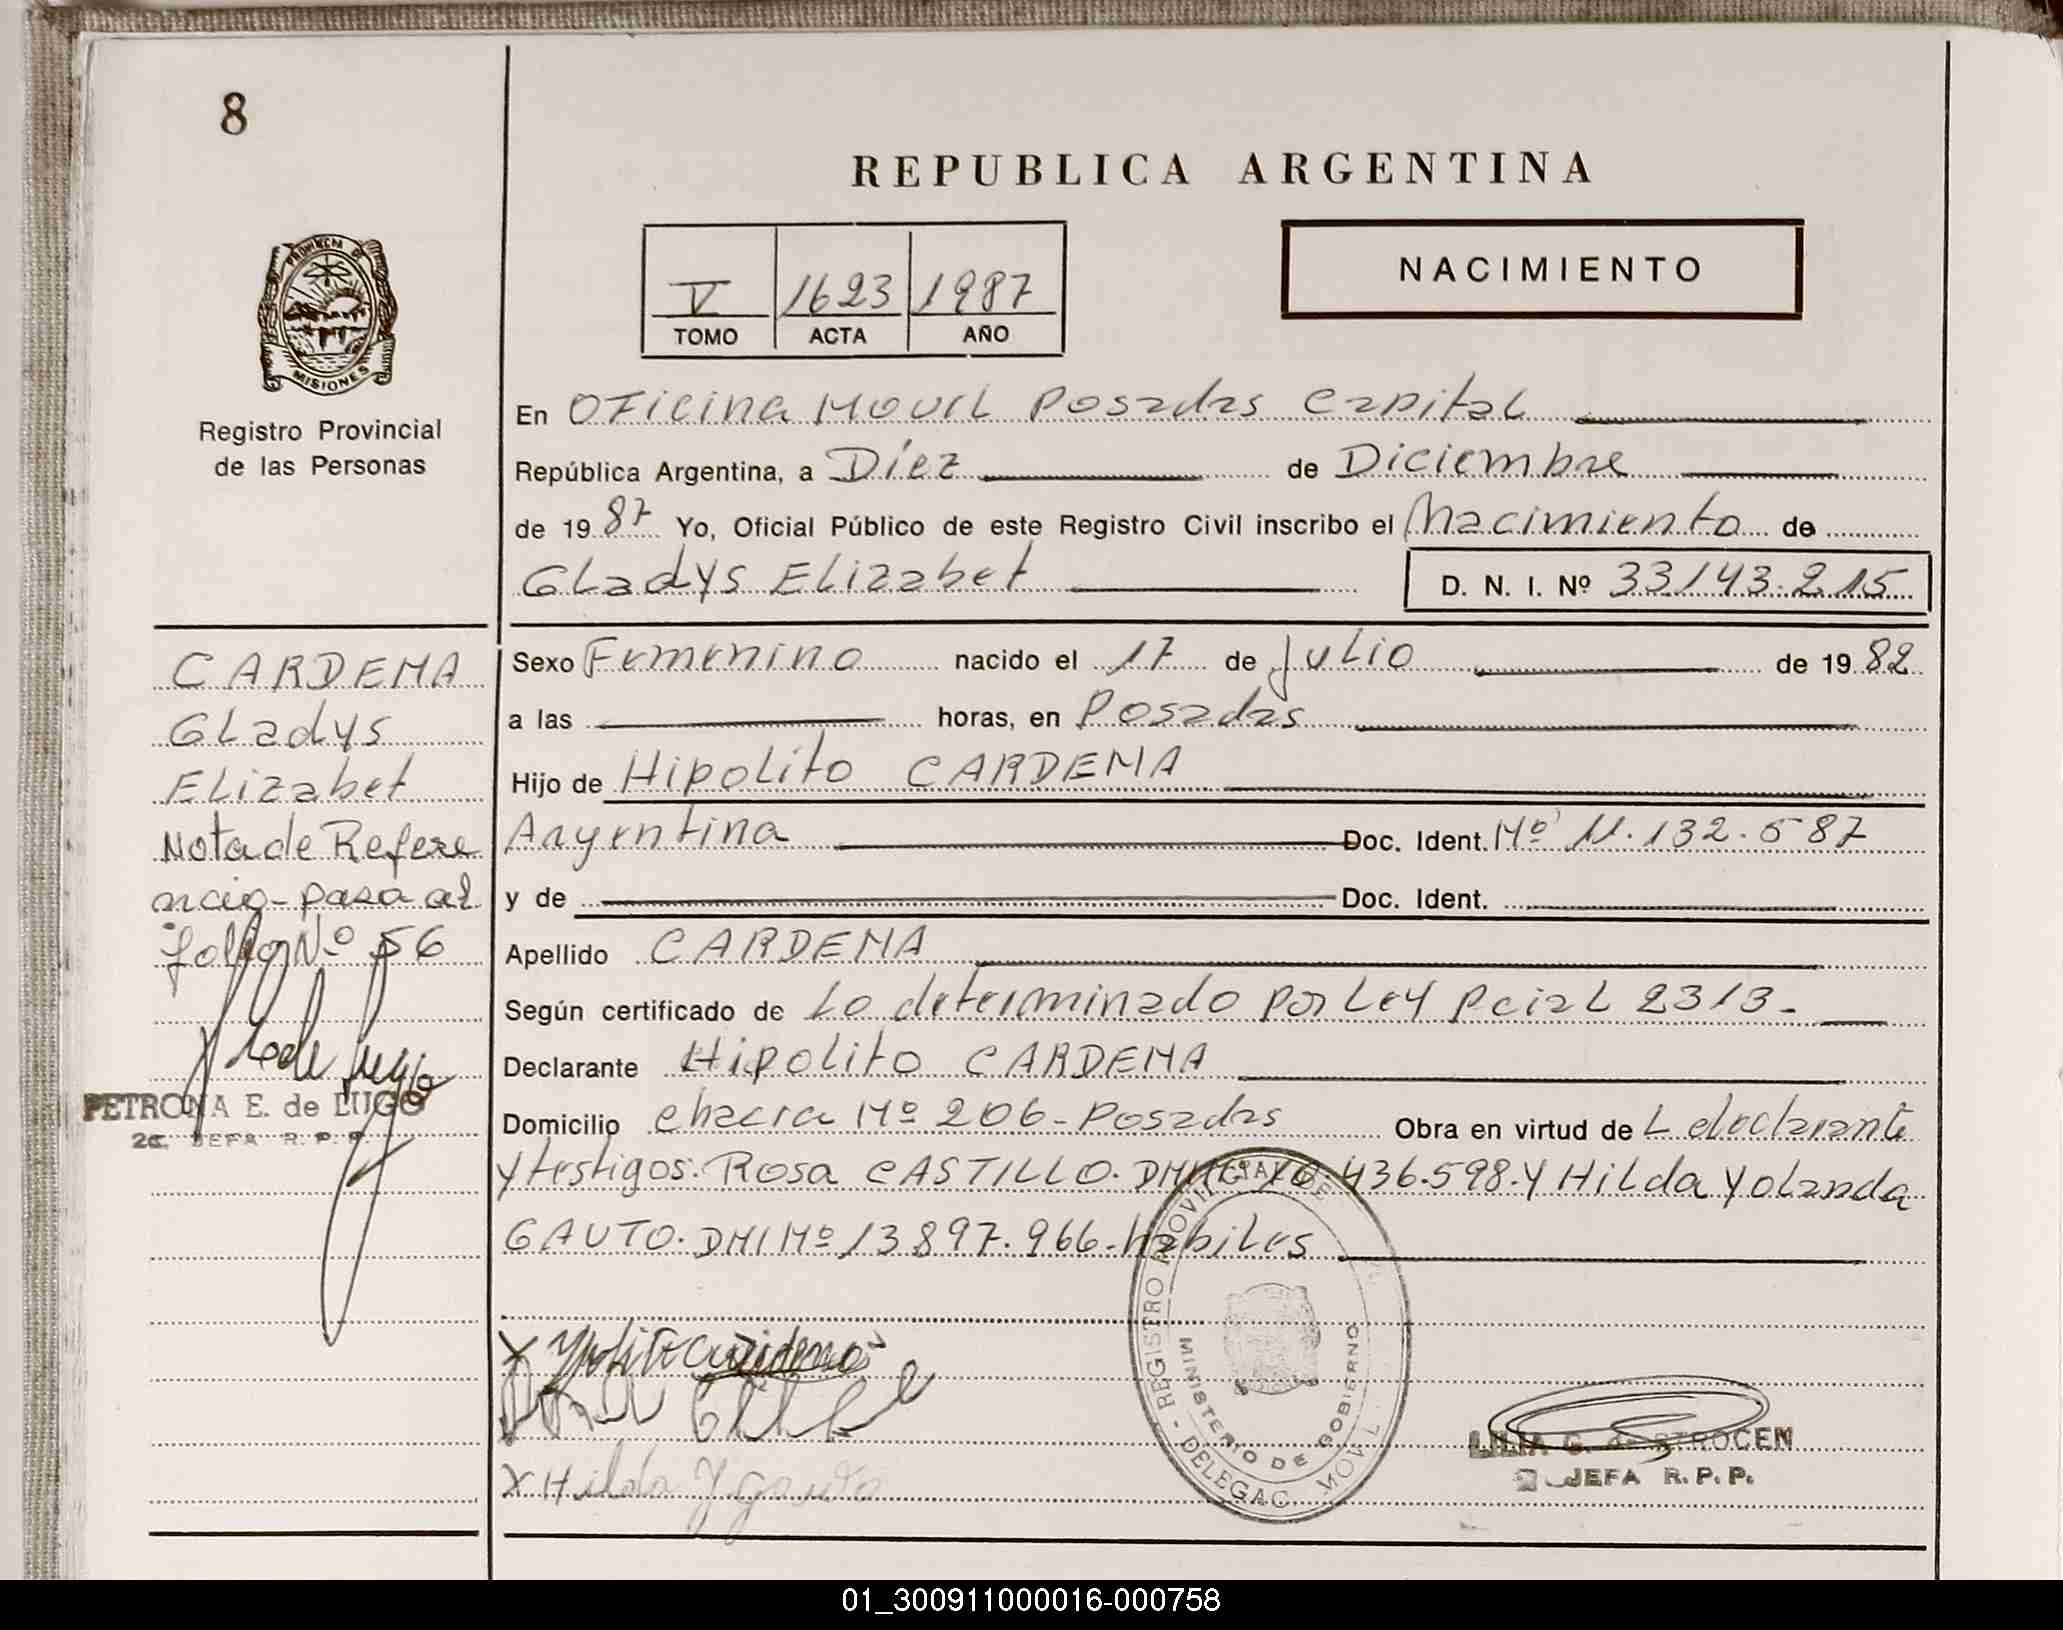 8
REPUBLICA ARGENTINA
PROVINCIA DE
MISIONES
Registro Provincial
de las Personas
V 1623 1987
TOMO ACTA AÑO
NACIMIENTO
En Oficina Movil Posadas Capital
República Argentina, a Diez de Diciembre
de 1987 Yo, Oficial Público de este Registro Civil inscribo el Nacimiento de
Gladys Elizabet D. N. I. Nº 33143.215
CARDEMA
Gladys
Elizabet
Nota de Refere
ncia - pasa al
folio Nº 56
PETRONA E. de LUGO
2a. JEFA R. P. P.
Sexo Femenino nacido el 17 de Julio de 1982
a las horas, en Posadas
Hijo de Hipolito CARDEMA
Argentina Doc. Ident. Nº 11.132.587
y de Doc. Ident.
Apellido CARDEMA
Según certificado de Lo determinado por Ley Pcial 2313-
Declarante Hipolito CARDEMA
Domicilio chacra Nº 206 - Posadas Obra en virtud de L declarante
y testigos: Rosa CASTILLO. 436.598. y Hilda Yolanda
GAUTO. DNI Nº 13897.966. habiles
X Hilda Y Gauto
REGISTRO PROVINCIAL DE
DELEGAC. MOVIL
MINISTERIO DE GOBIERNO
LILIA G. de STROCEN
JEFA R. P. P.
01_300911000016-000758